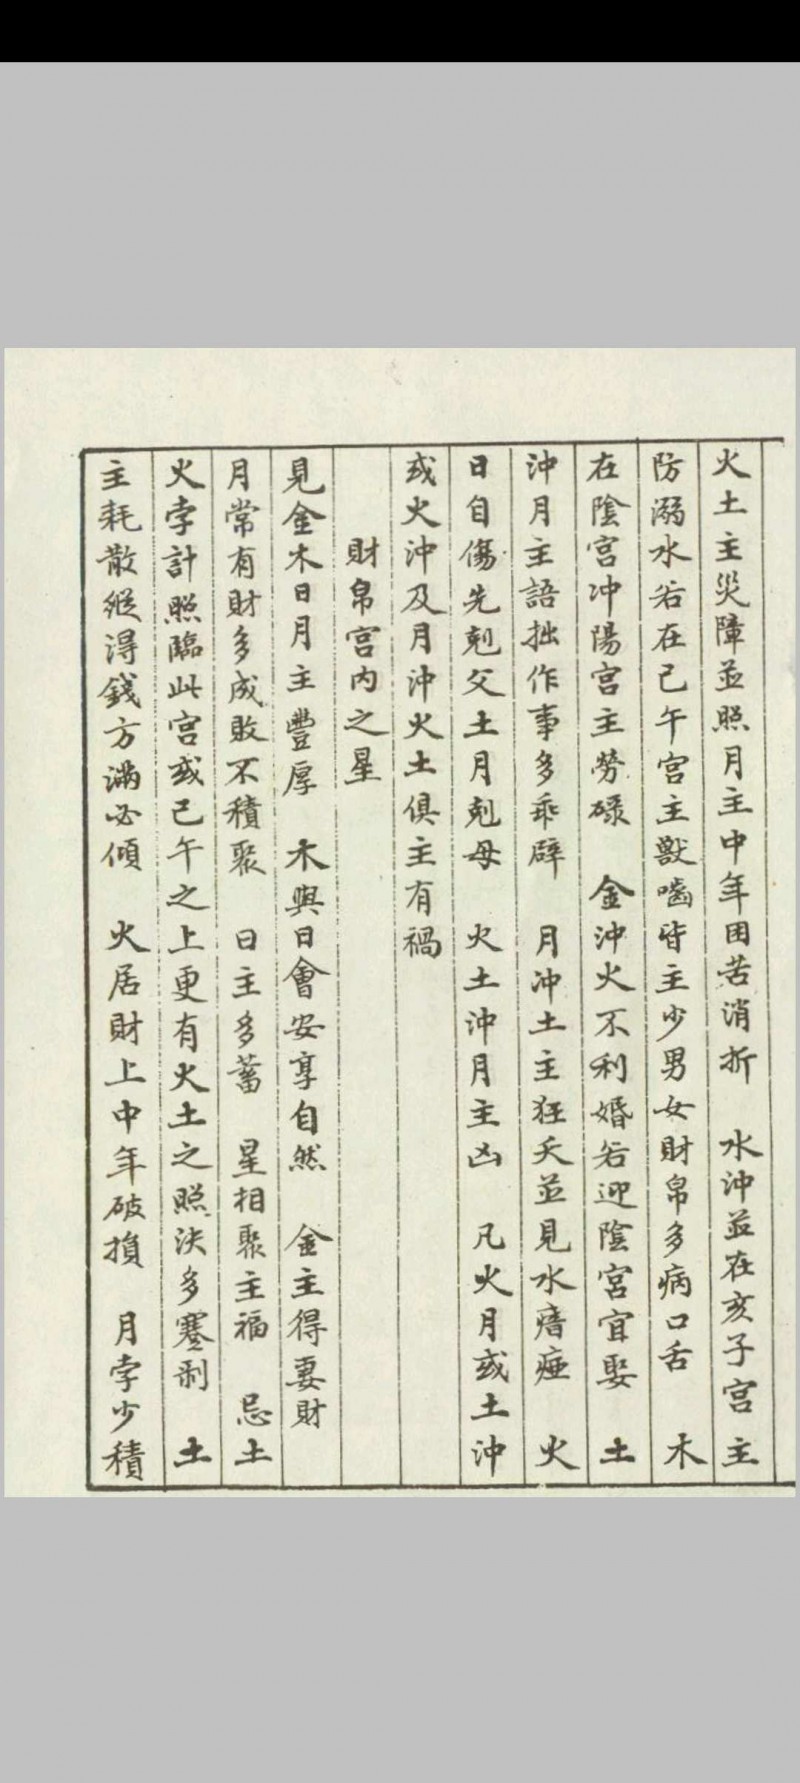 火土主災障並照月主中年困苦消折　水沖並在亥子宮主
防溺水若在己午宮主獸嚙皆主少男女財帛多病口舌　木
在陰宮冲陽宮主勞碌　金沖火不利婚若迎陰宮宜娶　土
沖月主語拙作事多乖僻　月沖土主狂夭並見水瘖瘂　火
日自傷先剋父土月剋母　火土沖月主凶　凡火月或土沖
或火沖及月沖火土俱主有禍
財帛宮内之星
見金木日月主豐厚　木與日會安享自然　金主得妻財
月常有財多成敗不積聚　日主多蓄　星相聚主福　忌土
火孛計照臨此宮或己午之上更有火土之照決多蹇剥　土
主耗散縱得錢方滿必傾　火居財上中年破損　月孛少積